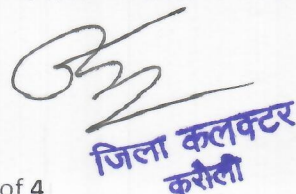 जिला कलक्टर
करौली
of 4